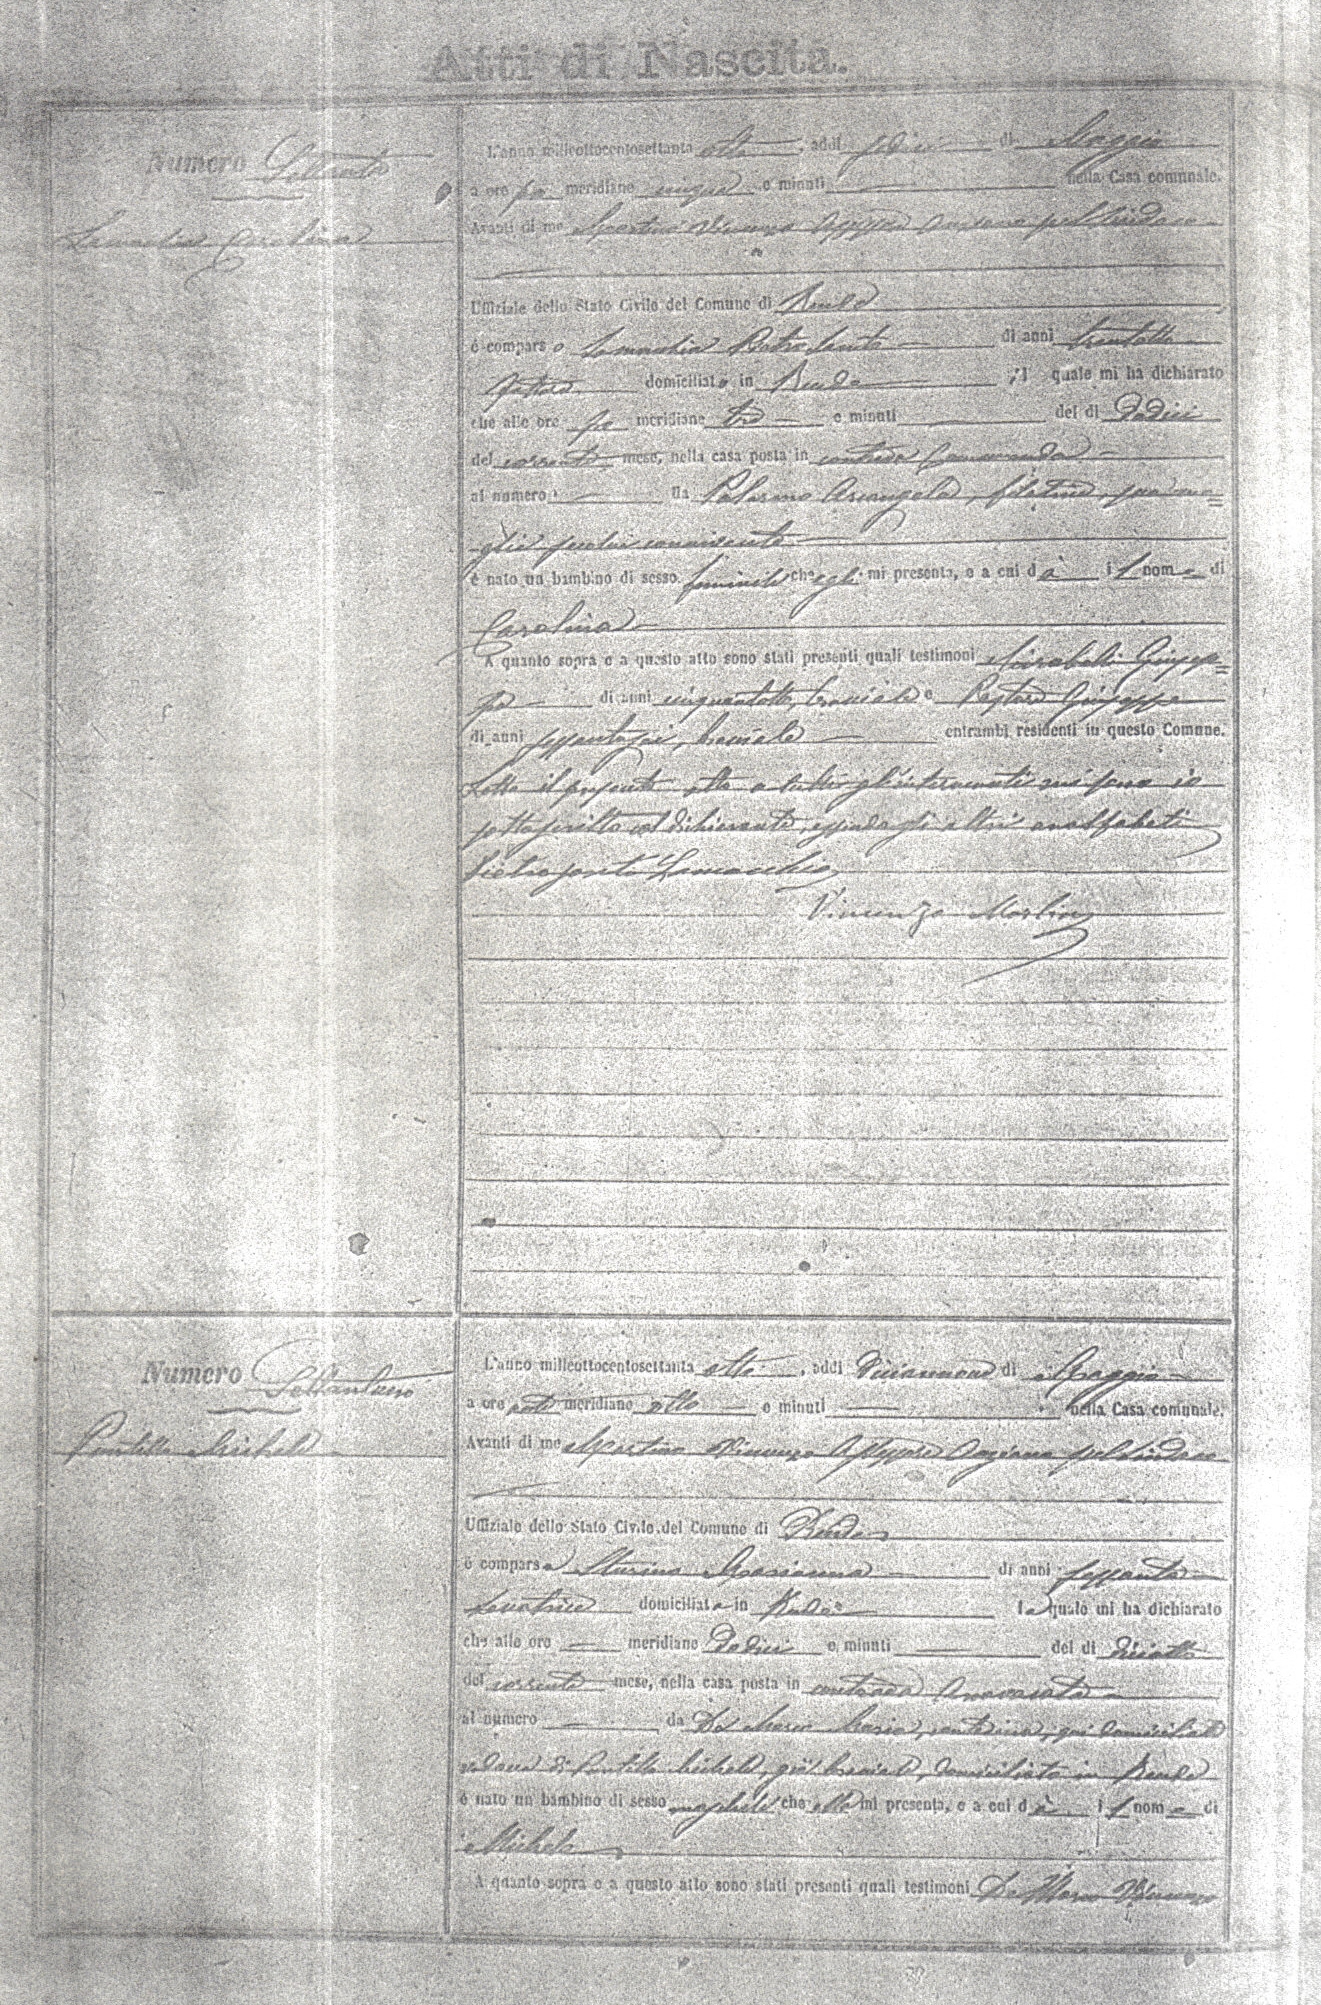 Atti di Nascita.
Numero Settanta
Carolina
L'anno milleottocentosettanta otto, addì di Maggio
a ore po meridiane cinque e minuti — nella Casa comunale.
Avanti di me Vincenzo Assessore Anziano pel Sindaco
Uffiziale dello Stato Civile del Comune di Rende
è comparso Lamacchia Pietrosanto di anni trentotto
domiciliato in Rende, il quale mi ha dichiarato
che alle ore po meridiane tre e minuti — del dì dodici
del corrente mese, nella casa posta in contrada
al numero — da Palermo Arcangela, filatrice, sua mo=
glie seco lui convivente
è nato un bambino di sesso femminile che egli mi presenta, e a cui dà il nome di
Carolina
A quanto sopra e a questo atto sono stati presenti quali testimoni Mirabelli Giusep=
pe di anni cinquantotto, bracciale e Giuseppe
di anni sessantasei, bracciale entrambi residenti in questo Comune.
Letto il presente atto a tutti gl'intervenuti mi sono io
sottoscritto col dichiarante, essendo gli altri analfabeti
Pietrosanto Lamacchia
Vincenzo
Numero Settantuno
Puntillo Michele
L'anno milleottocentosettanta otto, addì diciannove di Maggio
a ore anti meridiane otto e minuti — nella Casa comunale.
Avanti di me Vincenzo Assessore Anziano pel Sindaco
Uffiziale dello Stato Civile del Comune di Rende
è comparsa Marianna di anni sessanta
levatrice domiciliata in Rende la quale mi ha dichiarato
che alle ore — meridiane dodici e minuti — del dì diciotto
del corrente mese, nella casa posta in contrada
al numero — da De Marco Maria, contadina, qui domiciliata
vedova di Puntillo Michele, già bracciale, domiciliato in Rende
è nato un bambino di sesso maschile che ella mi presenta, e a cui dà il nome di
Michele
A quanto sopra e a questo atto sono stati presenti quali testimoni De Marco Vincenzo